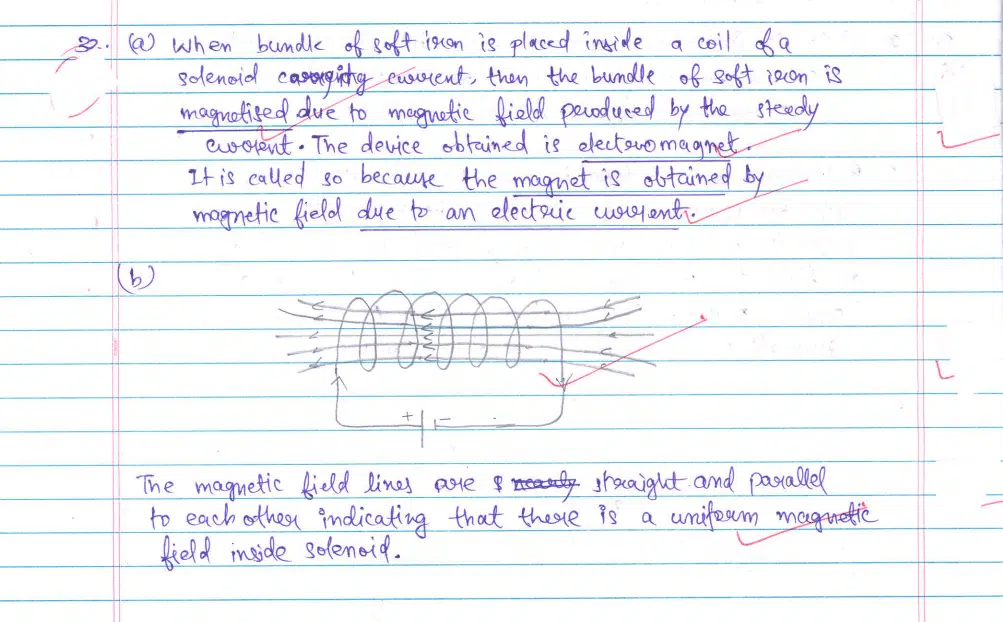 30. (a) When bundle of soft iron is placed inside a coil of a
solenoid carrying current, then the bundle of soft iron is
magnetised due to magnetic field produced by the steady
current. The device obtained is electromagnet.
It is called so because the magnet is obtained by
magnetic field due to an electric current.
(b)
+ -
The magnetic field lines are nearly straight and parallel
to each other indicating that there is a uniform magnetic
field inside solenoid.